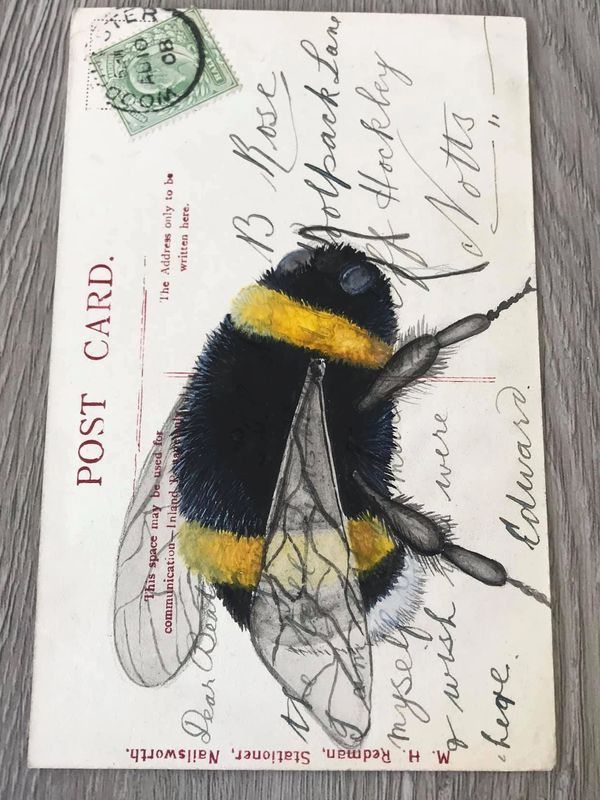 POST CARD.
This space may be used for
communication—Inland
The Address only to be
written here.
STER
WOOD
AU 10
08
B Rose
olpack Lane
ff Hockley
Notts
Dear
the
I am
myself
& wish were
here. Edward.
M. H Redman, Stationer, Nailsworth.